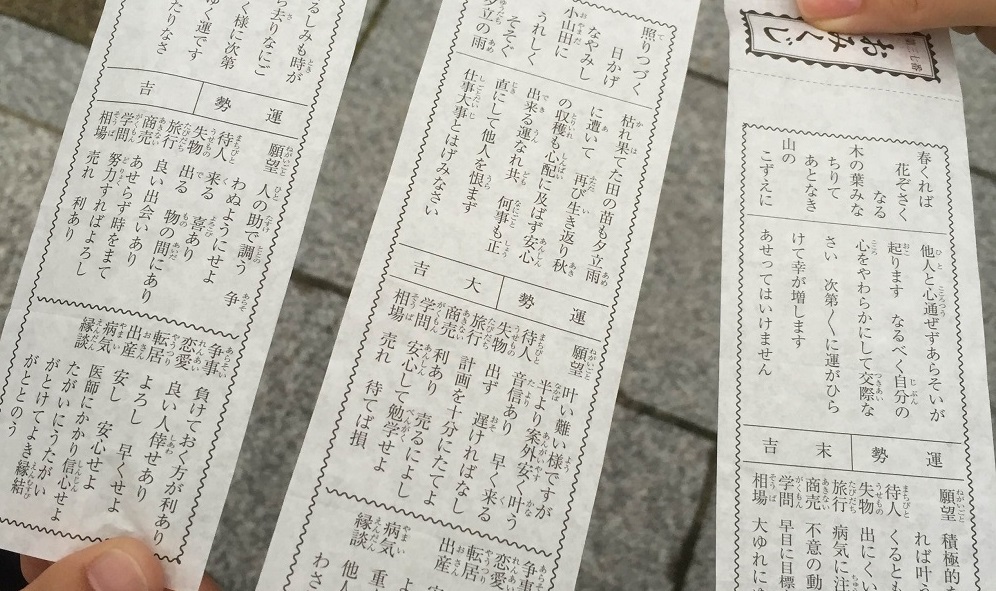 おみくじ
春くれば
花ぞさく
なる
木の葉みな
ちりて
あとなき
山の
こずえに
他人と心通ぜずあらそいが
起ります なるべく自分の
心をやわらかにして交際な
さい 次第くに運がひら
けて幸が増します
あせってはいけません
運勢 末吉
願望 積極的
れば叶
待人 くるとも
失物 出にくい
旅行 病気に注
商売 不意の動
学問 早目に目標
相場 大ゆれに
照りつづく
日かげ
なやみし
小山田に
うれしく
そそぐ
夕立の雨
枯れ果てた田の苗も夕立雨
に遭いて 再び生き返り秋
の収穫も心配に及ばず安心
出来る運なれ共 何事も正
直にして他人を恨まず
仕事大事とはげみなさい
運勢 大吉
願望 叶い難い様ですが
半より案外安く叶う
待人 音信あり 早く来る
失物 出ず 遅ければなし
旅行 計画を十分にたてよ
商売 利あり 売るによし
学問 安心して勉学せよ
相場 売れ 待てば損
争事
恋愛
転居
出産
病気 重
縁談 他人
わさ
るしみも時が
ら去りなにご
く様に次第
ゆく運です
たりなさ
運勢 吉
願望 人の助で調う 争
わぬようにせよ
待人 来る 喜あり
失物 出る 物の間にあり
旅行 良い出会いあり
商売 あせらず時をまて
学問 努力すればよろし
相場 売れ 利あり
争事 負けておく方が利あり
恋愛 良い人倖せあり
転居 よろし 早くせよ
出産 安し 安心せよ
病気 医師にかかり信心せよ
縁談 たがいにうたがい
がとけてよき縁結
がととのう